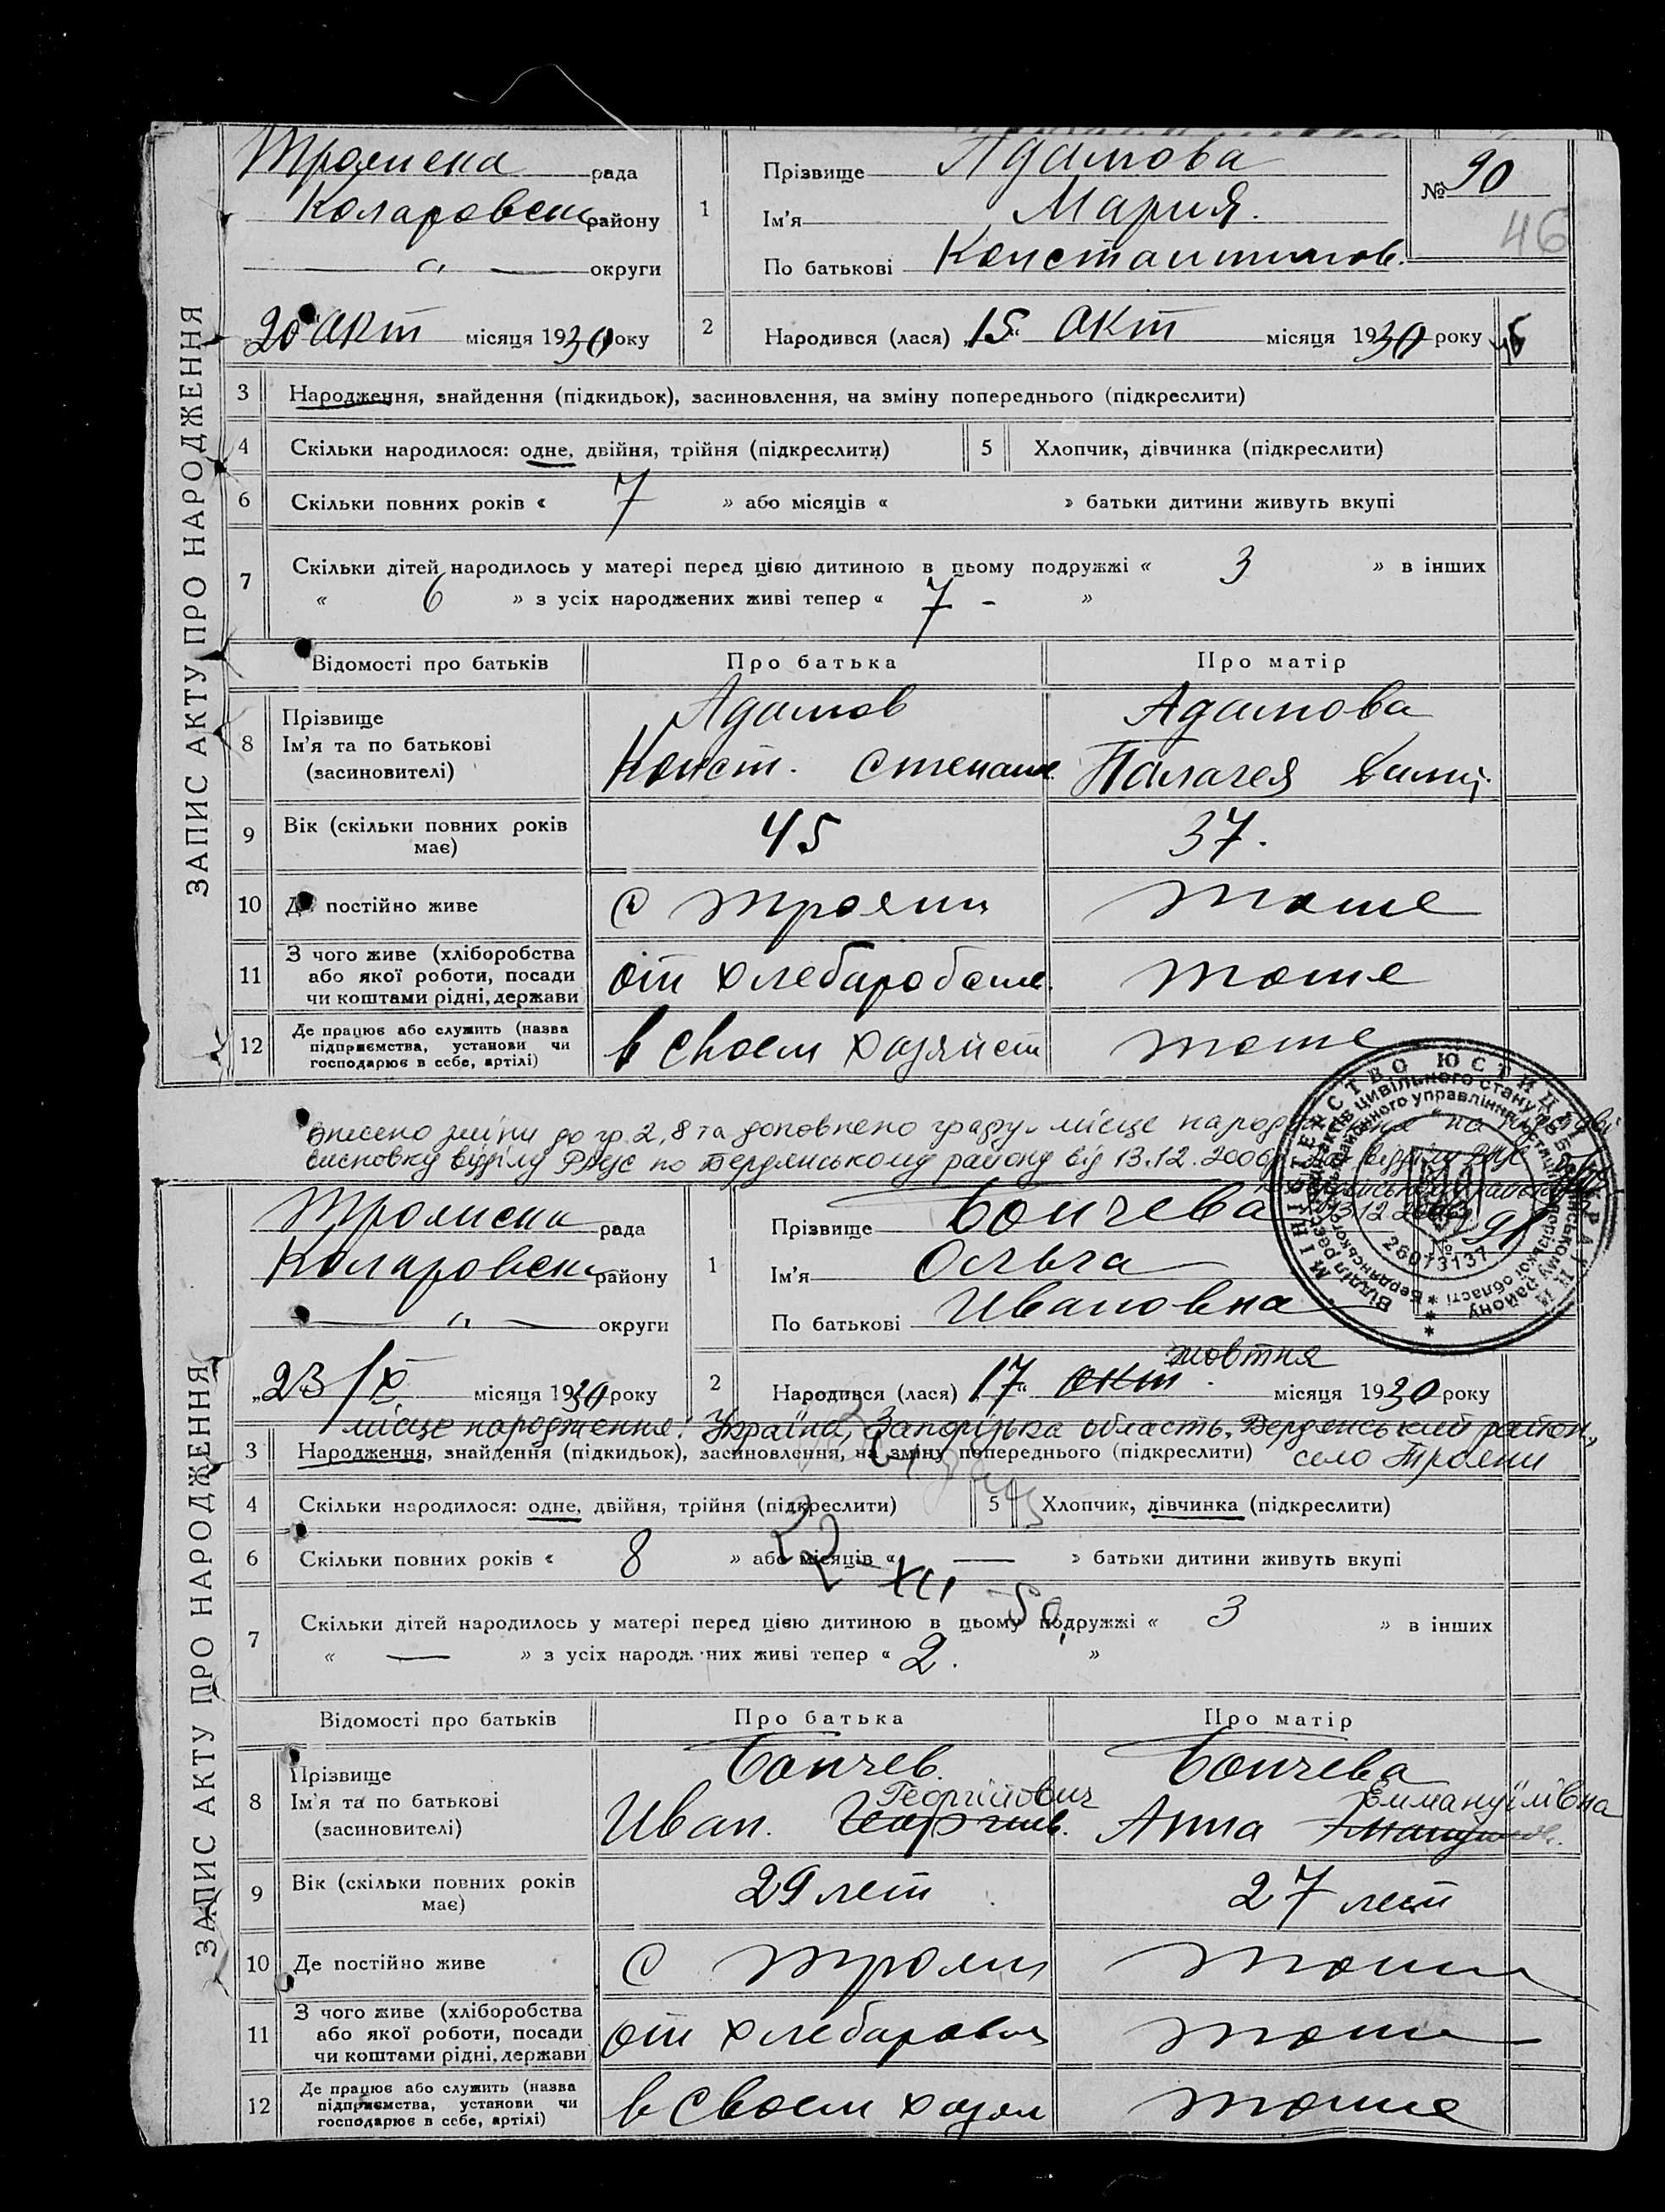 ЗАПИС АКТУ ПРО НАРОДЖЕННЯ
Трояиска рада
Коларовск району
— „ — округи
„20" окт місяця 1930 року
1 Прізвище Адамова
Ім'я Мария.
По батькові Константинов.
№ 90
46
2 Народився (лася) „15" окт місяця 1930 року
3 Народження, знайдення (підкидьок), засиновлення, на зміну попереднього (підкреслити)
4 Скільки народилося: одне, двійня, трійня (підкреслити) 5 Хлопчик, дівчинка (підкреслити)
6 Скільки повних років « 7 » або місяців « » батьки дитини живуть вкупі
7 Скільки дітей народилось у матері перед цією дитиною в цьому подружжі « 3 » в інших
« 6 » з усіх народжених живі тепер « 7 - »
Відомості про батьків Про батька Про матір
8 Прізвище Ім'я та по батькові (засиновителі)
Адамов Адамова
Конст. Степан. Палагея
9 Вік (скільки повних років має) 45 37.
10 Де постійно живе с Трояни тоже
11 З чого живе (хліборобства або якої роботи, посади чи коштами рідні, держави от хлебаробств. тоже
12 Де працює або служить (назва підприємства, установи чи господарює в себе, артілі) в своем хозяйст тоже
Внесено зміни до гр. 2, 8 та доповнено графу „місце народження" на підставі
висновку відділу РАЦС по Бердянському району від 13.12.2006
13.12.2006
МІНІСТЕРСТВО ЮСТИЦІЇ УКРАЇНИ
Відділ реєстрації актів цивільного стану по Бердянському району
Бердянського районного управління юстиції Запорізької області
26073137
ЗАПИС АКТУ ПРО НАРОДЖЕННЯ
Трояиска рада
Коларовск району
— „ — округи
„23/X місяця 1930 року
1 Прізвище Бончева
Ім'я Ольга
По батькові Ивановна
№ 91
жовтня
2 Народився (лася) „17" окт. місяця 1930 року
місце народження: Україна, Запорізька область, Бердянський район,
село Трояни
3 Народження, знайдення (підкидьок), засиновлення, на зміну попереднього (підкреслити)
4 Скільки народилося: одне, двійня, трійня (підкреслити) 5 Хлопчик, дівчинка (підкреслити)
6 Скільки повних років « 8 » або місяців « — » батьки дитини живуть вкупі
22 XII 50
7 Скільки дітей народилось у матері перед цією дитиною в цьому подружжі « 3 » в інших
« — » з усіх народжених живі тепер « 2. »
Відомості про батьків Про батька Про матір
8 Прізвище Ім'я та по батькові (засиновителі)
Бончев. Бончева
Георгійович Еммануїлівна
Иван. Георгиев. Анна
9 Вік (скільки повних років має) 29 лет 27 лет
10 Де постійно живе с Трояни тоже
11 З чого живе (хліборобства або якої роботи, посади чи коштами рідні, держави от хлебаробств тоже
12 Де працює або служить (назва підприємства, установи чи господарює в себе, артілі) в своем хозяй тоже